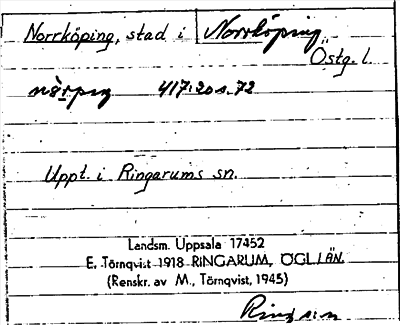 Norrköping, stad i Norrköping,
Östg. l.
417:20 s. 72
Uppt. i Ringarums sn.
Landsm. Uppsala 17452
E. Törnqvist 1918 RINGARUM, ÖGL. LÄN.
(Renskr. av M. Törnqvist, 1945)
Ring sn